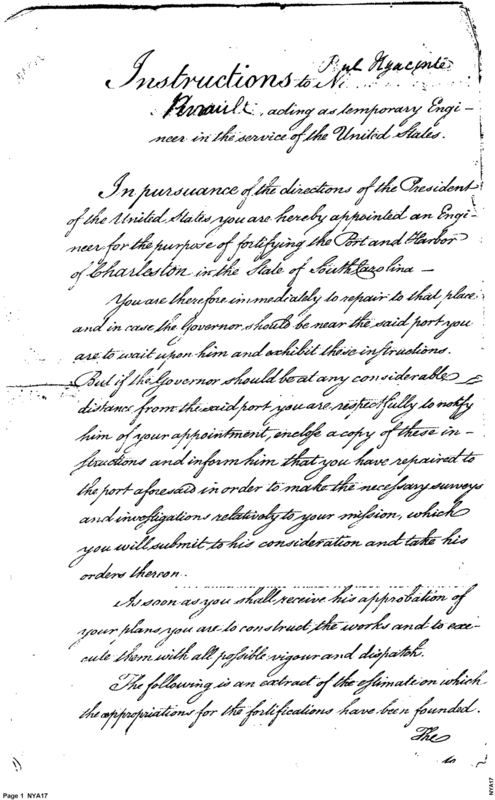 Instructions to Paul Hyacinte
Perrault, acting as temporary Engi-
neer in the service of the United States.
In pursuance of the directions of the President
of the United States, you are hereby appointed an Engi-
neer for the purpose of fortifying the Port and Harbor
of Charleston in the State of South Carolina —
You are therefore immediately to repair to that place,
and in case the Governor should be near the said port you
are to wait upon him and exhibit these instructions.
But if the Governor should be at any considerable
distance from the said port you are, respectfully to notify
him of your appointment, enclose a copy of these in-
structions and inform him that you have repaired to
the port aforesaid in order to make the necessary surveys
and investigations relatively to your mission, which
you will submit to his consideration and take his
orders thereon.
As soon as you shall receive his approbation of
your plans you are to construct the works and to exe-
cute them with all possible vigour and dispatch.
The following is an extract of the estimate on which
the appropriations for the fortifications have been founded.
The
Page 1 NYA17
NYA17